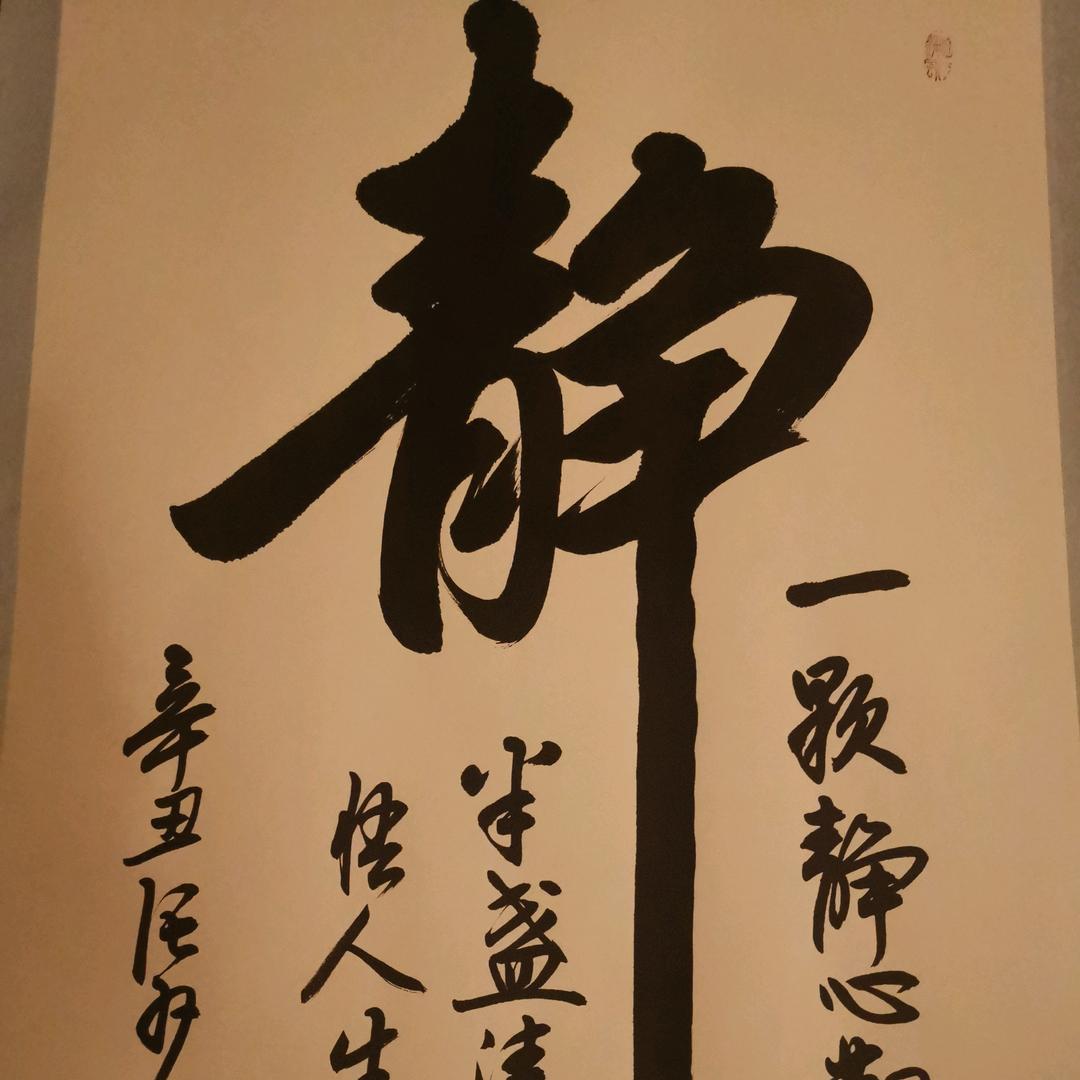 静
一颗静心
半盏清
悟人生
辛丑